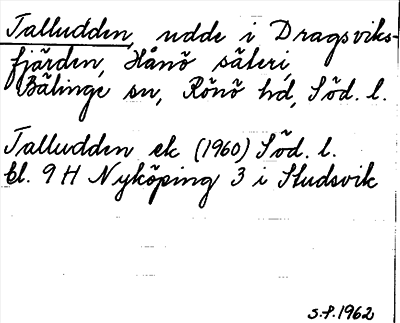 Talludden, udde i Dragsviks-
fjärden, Hånö säteri,
Bälinge sn, Rönö hd, Söd. l.
Talludden ek (1960) Söd. l.
bl. 9 H Nyköping 3 i Studsvik
S.P. 1962